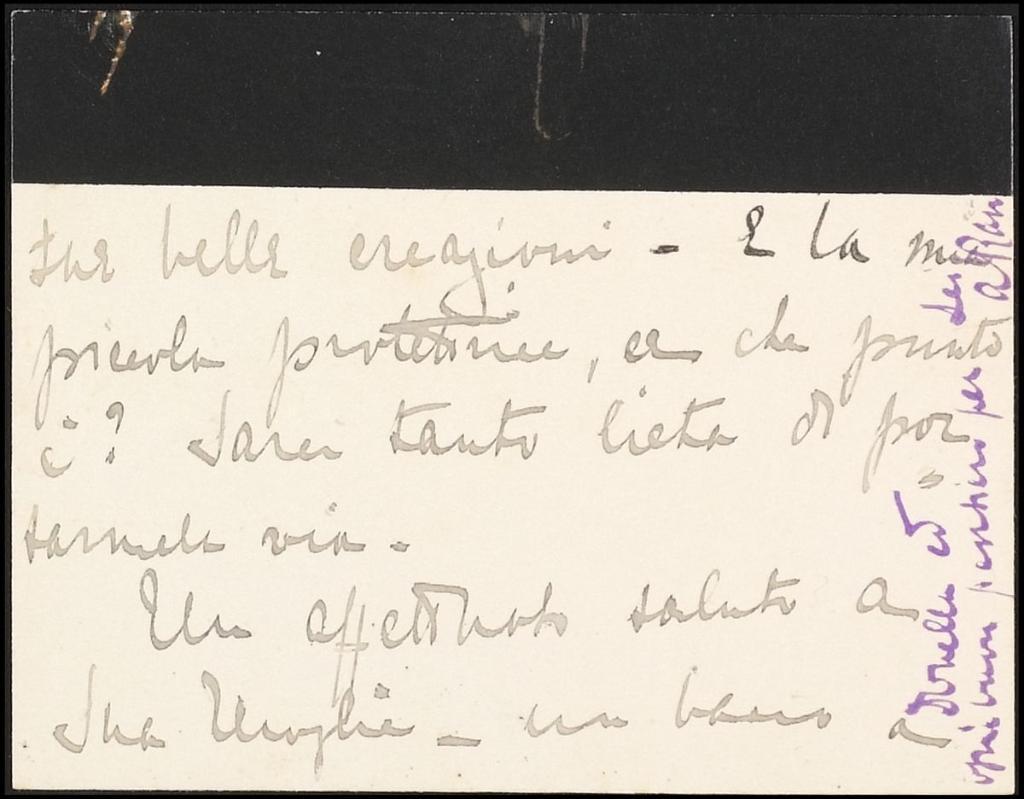 sue belle creazioni - E la mia
piccola protettrice, a che punto
è? Sarei tanto lieta di por=
tarmela via.
Un affettuoso saluto a
Sua Moglie - un bacio a
Donella ed
ogni buon pensiero per Lei